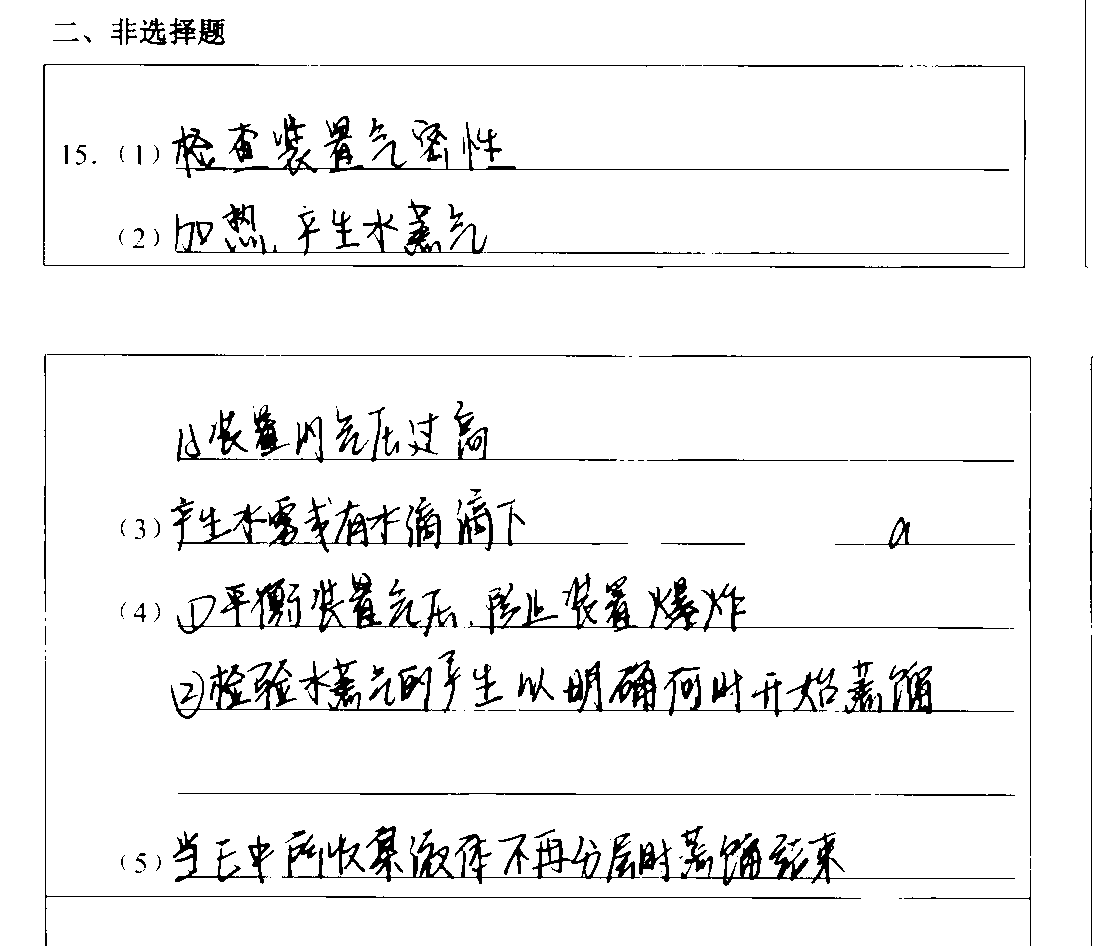 二、非选择题
15.(1)检查装置气密性
(2)加热,产生水蒸气
装置内气压过高
(3)产生水雾或有水滴滴下 a
(4)①平衡装置气压,防止装置爆炸
②检验水蒸气的产生以明确何时开始蒸馏
(5)当E中所收集液体不再分层时蒸馏结束